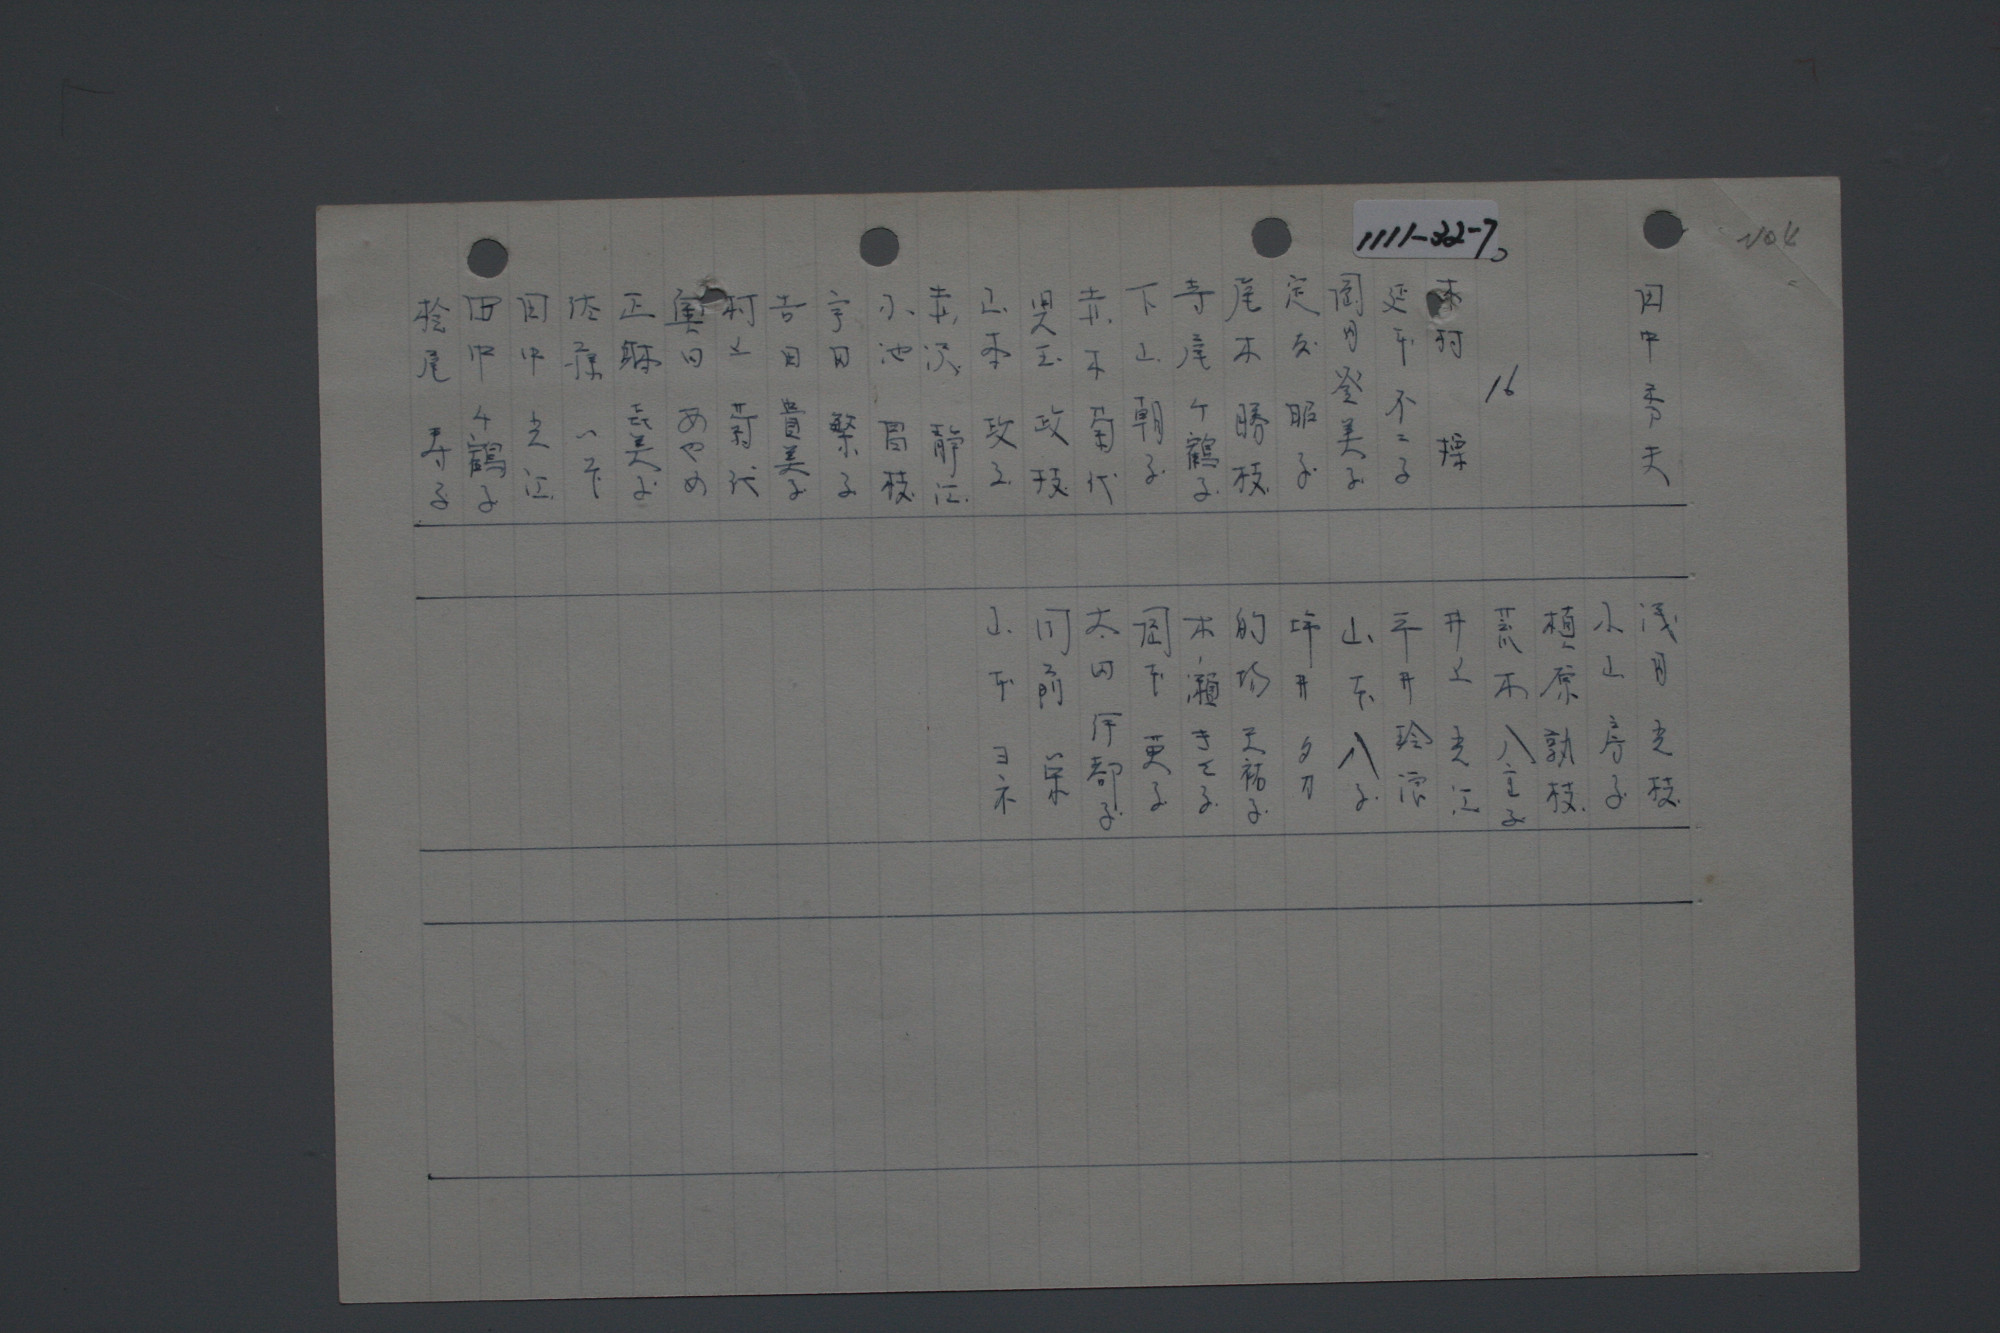 No4
1111-32-7
田中秀夫
16
木村 操
延本不二子
岡田登美子
定友昭子
尾木勝枝
寺尾千鶴子
下山朝子
赤木菊代
児玉政枝
山本政子
赤沢静江
小池昌枝
宇田繁子
吉田貴美子
村上菊代
奥田あやめ
正畑喜美子
佐藤
田中光江
田中千鶴子
桧尾寿子
浅田光枝
小山房子
植原勲枝
荒木八重子
井上光江
平井玲子
山本八子
坪井夕カ
的場天祐子
木ノ瀬きくゑ
岡本更子
太田伊都子
門前 栄
山本ヨネ